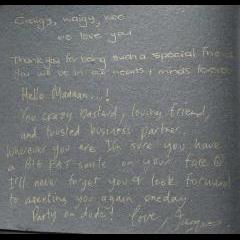 Craigy, waigy, woo
we love you
Thankyou for being such a special friend
You will be in our hearts & minds forever
Hello Madman...!
You crazy bastard, loving friend,
and trusted business partner.
Wherever you are I'm sure you have
a BIG FAT smile on your face
I'll never forget you & look forward
to meeting you again oneday
Party on dude! love,